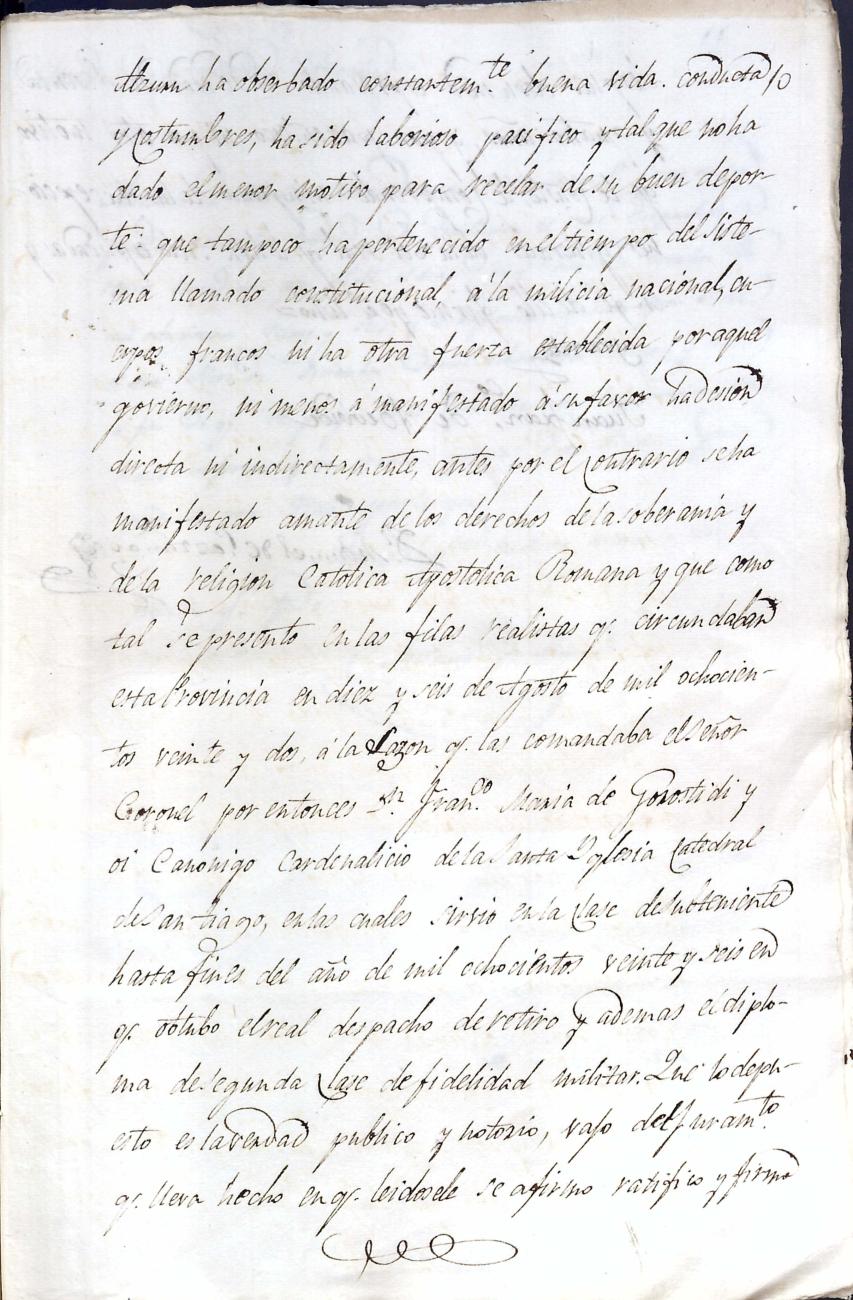 Alzuru ha obserbado constantem.te buena vida. conducta 10
y costumbres, ha sido laborioso pacifico y tal que no ha
dado el menor motivo para recelar de su buen depor-
te: que tampoco ha pertenecido en el tiempo del siste-
ma llamado constitucional, á la milicia nacional, cu-
erpos francos ni ha otra fuerza establecida por aquel
govierno, ni menos á manifestado á su favor hadesion
directa ni indirectamente, antes por el contrario se ha
manifestado amante de los derechos de la soberania y
de la religion Catolica Apostolica Romana y que como
tal se presento en las filas realistas q.e circundaban
esta Provincia en diez y seis de Agosto de mil ochocien-
tos veinte y dos, á la Sazon q.e las comandaba el Señor
Coronel por entonces Dn. Fran.co Maria de Gorostidi y
oi Canonigo Cardenalicio de la Santa Yglesia Catedral
de Santiago, en las cuales sirvio en la clase de subteniente
hasta fines del año de mil ochocientos veinte y seis en
q.e obtubo el real despacho de retiro y ademas el diplo-
ma de segunda clase de fidelidad militar. Que lo depu-
esto es la verdad publico y notorio, vajo del Juram.to
q.e lleva hecho en q.e leidosele se afirmo ratifico y firmo